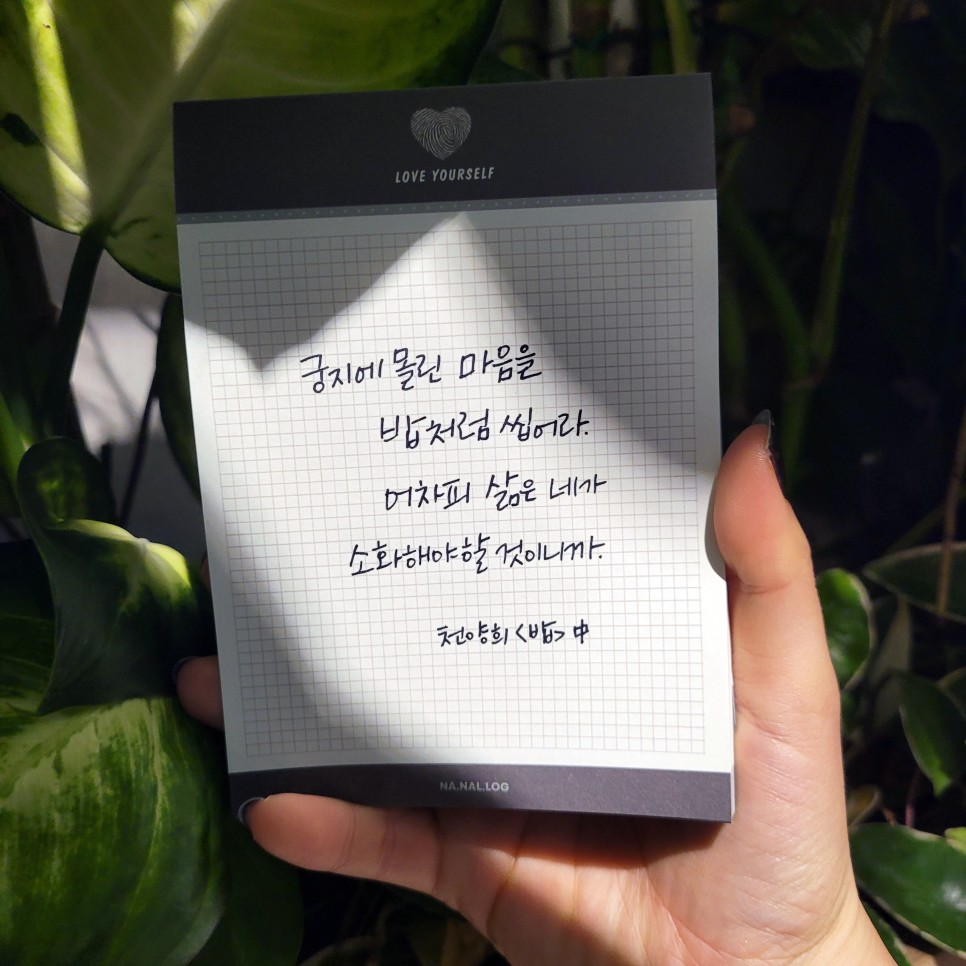 LOVE YOURSELF
궁지에 몰린 마음을
밥처럼 씹어라.
어차피 삶은 네가
소화해야할 것이니까.
천양희 <밥> 中
NA.NAL.LOG